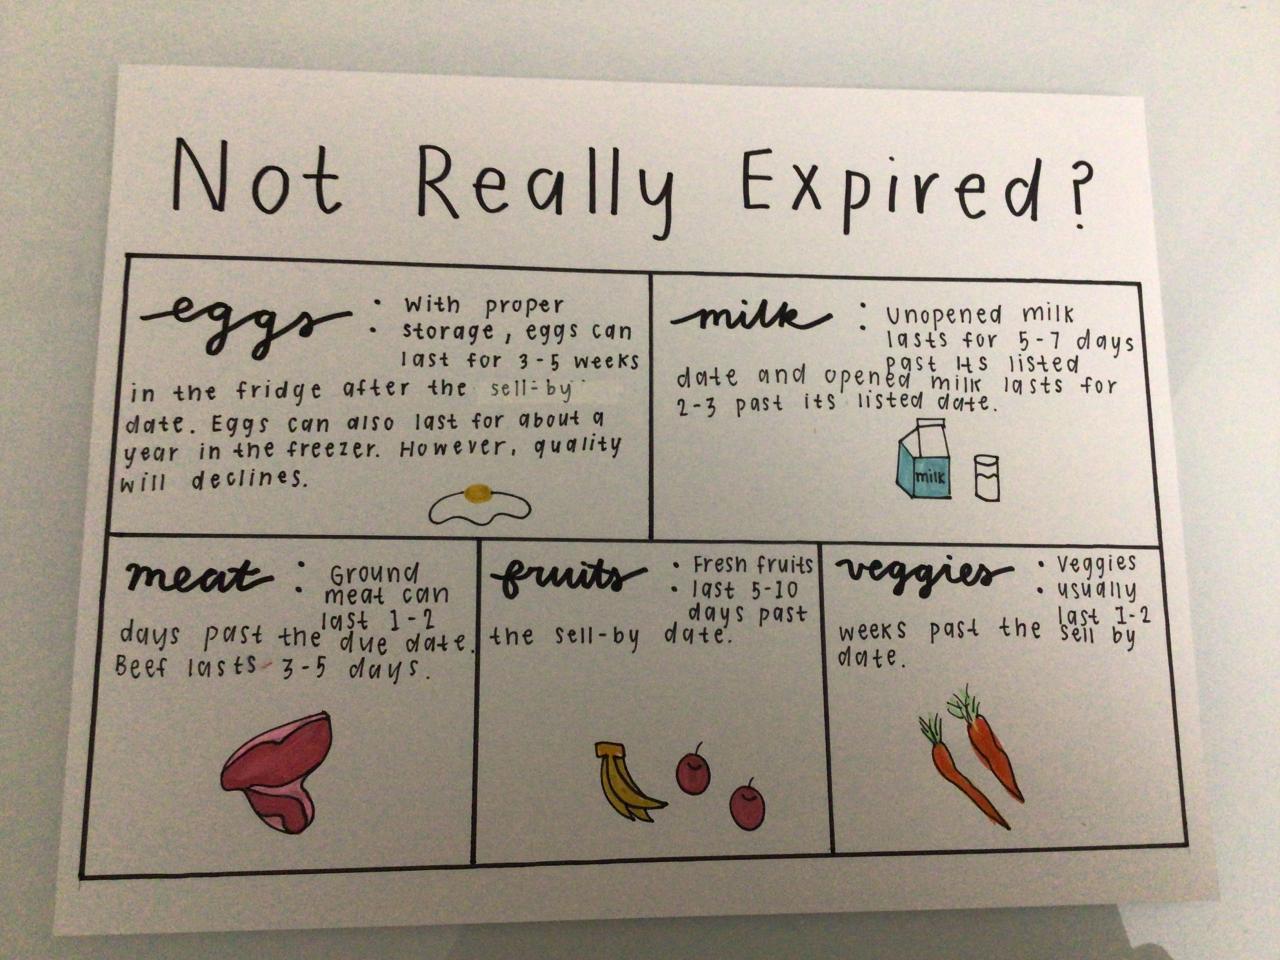 Not Really Expired?
eggs : With proper
storage, eggs can
last for 3-5 weeks
in the fridge after the sell-by
date. Eggs can also last for about a
year in the freezer. However, quality
will declines.
milk : Unopened milk
lasts for 5-7 days
past its listed
date and opened milk lasts for
2-3 past its listed date.
milk
meat : Ground
meat can
last 1-2
days past the due date.
Beef lasts 3-5 days.
fruits : Fresh fruits
last 5-10
days past
the sell-by date.
veggies : Veggies
usually
last 1-2
weeks past the sell by
date.